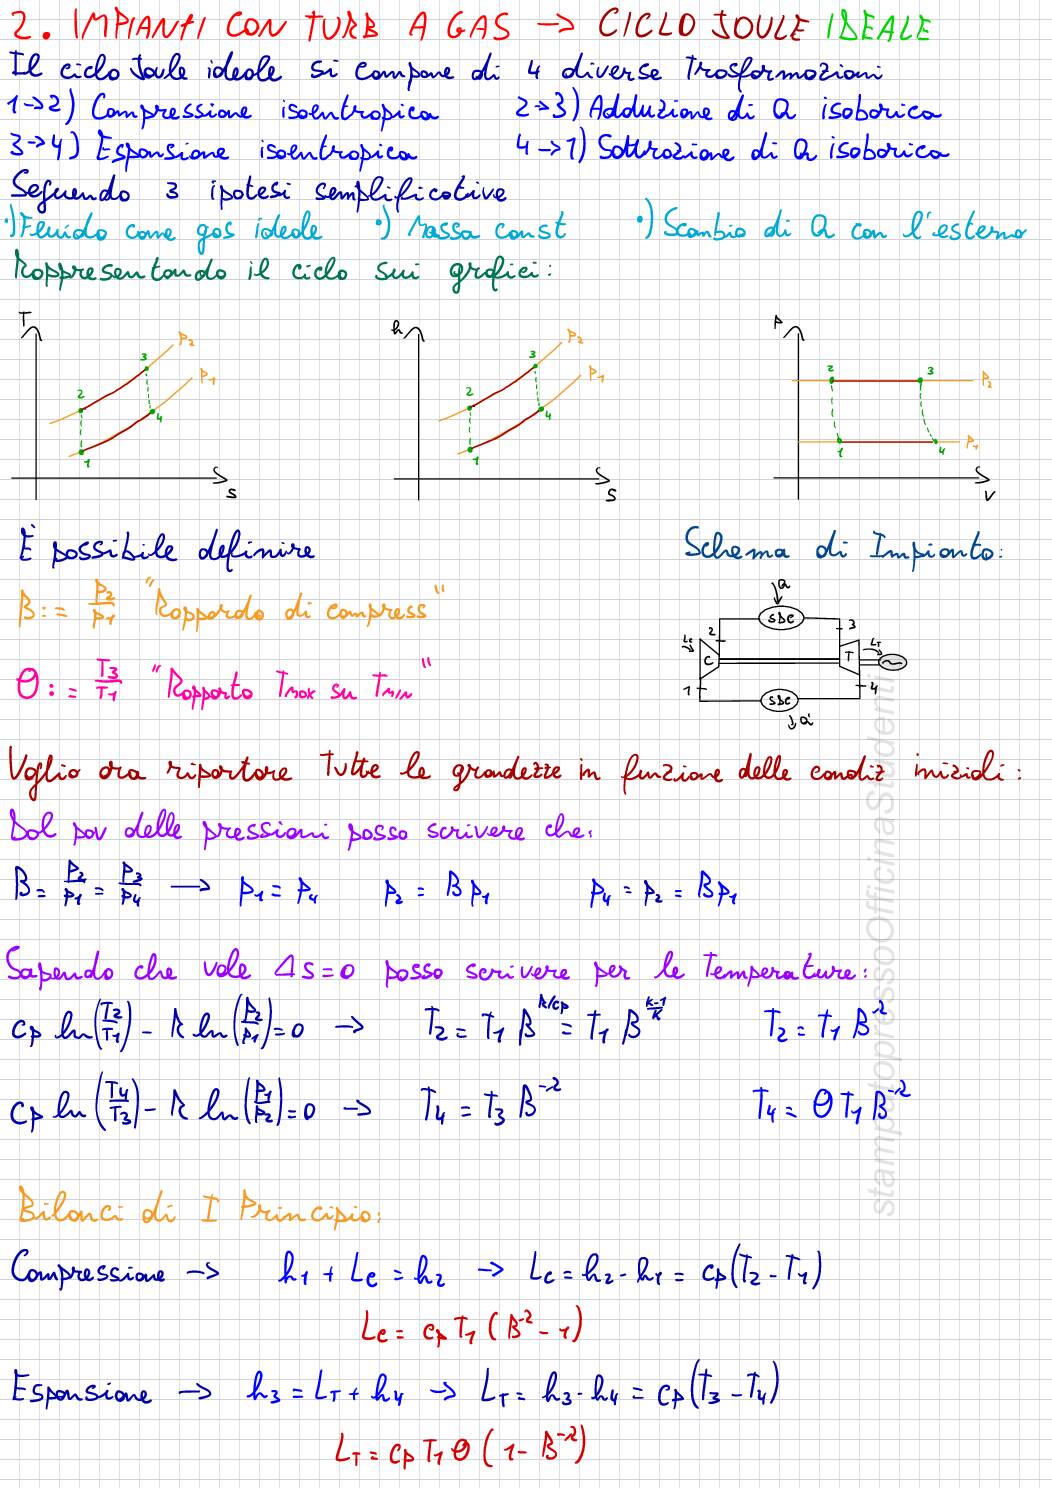 2. IMPIANTI CON TURB A GAS → CICLO JOULE IDEALE
Il ciclo Joule ideale si compone di 4 diverse trasformazioni
1→2) Compressione isoentropica 2→3) Adduzione di Q isobarica
3→4) Espansione isoentropica 4→1) Sottrazione di Q isobarica
Seguendo 3 ipotesi semplificative
•) Fluido come gas ideale •) Massa const •) Scambio di Q con l'esterno
Rappresentando il ciclo sui grafici:
T P2 3 P1 2 4 1 S
h P2 3 P1 2 4 1 S
P 2 3 P2 1 4 P1 V
È possibile definire Schema di Impianto:
β := P2/P1 "Rappordo di compress"
θ := T3/T1 "Rapporto Tmax su Tmin"
Q SDC 2 3 Lc LT C T 1 4 SDC Q'
Voglio ora riportare tutte le grandezze in funzione delle condiz iniziali:
Dal pov delle pressioni posso scrivere che:
β = P2/P1 = P3/P4 → P1 = P4 P2 = β P1 P4 = P2 = β P1
Sapendo che vale Δs=0 posso scrivere per le temperature:
cp ln(T2/T1) - R ln(P2/P1) = 0 → T2 = T1 β^R/cp = T1 β^k-1/k T2 = T1 β^λ
cp ln(T4/T3) - R ln(P1/P2) = 0 → T4 = T3 β^-λ T4 = θ T1 β^-λ
Bilanci di I Principio:
Compressione → h1 + Lc = h2 → Lc = h2 - h1 = cp(T2 - T1)
Lc = cp T1 (β^λ - 1)
Espansione → h3 = LT + h4 → LT = h3 - h4 = cp(T3 - T4)
LT = cp T1 θ (1 - β^-λ)
stampatopressoOfficinaStudenti